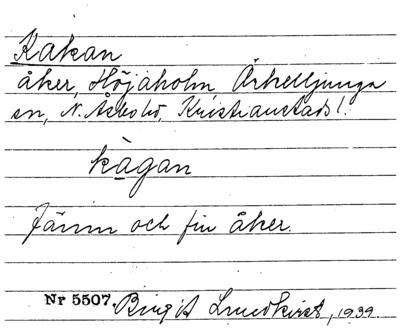 Kakan
åker, Höjaholm Örkelljunga
sn, N. Åsbo hd, Kristianstads l.
kagan
Jämn och fin åker.
Nr 5507. Birgit Lundkvist, 1939.